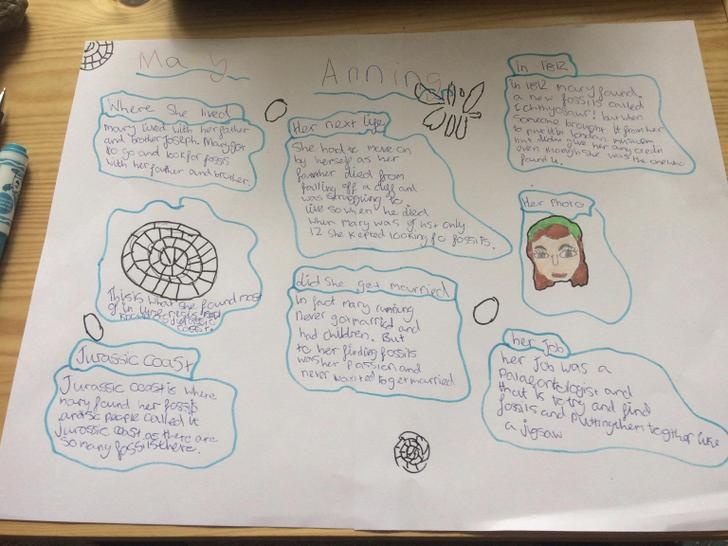 Mary Anning
Where She lived
Mary lived with her father
and brother Joseph. Mary got
to go and look for fossis
with her father and brother.
This is what she found most
of in
Jurassic coast
Jurassic coast is where
mary found her fossis
and people called it
Jurassic coast as there are
so many fossils there.
Her next life
She had to move on
by herself as her
farther died from
falling off a cliff and
was struggling to
live so when he died
when Mary was just only
12 she kepted looking fo fossils.
did She get mourried
In fact mary running
never got married and
had children. But
to her finding fossils
was her passion and
never wanted to get married
In 1812
In 1812 mary found
a new fossils called
Ichthyosaur! but when
someone brought it from her
to put it in london museum
but didn't give her any credit
even though she was the one who
found it.
Her Photo
her Job
her Job was a
Palaeontologist and
that is to try and find
fossils and putting them together like
a Jigsaw